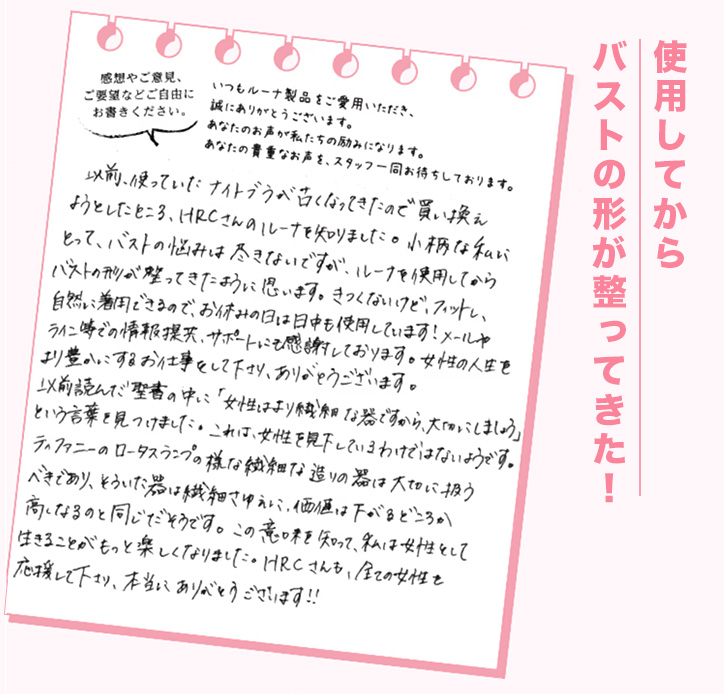 使用してから
バストの形が整ってきた！
感想やご意見、
ご要望などご自由に
お書きください。
いつもルーナ製品をご愛用いただき、
誠にありがとうございます。
あなたのお声が私たちの励みになります。
あなたの貴重なお声を、スタッフ一同お待ちしております。
以前、使っていたナイトブラが古くなってきたので買い換え
ようとしたところ、HRCさんのルーナを知りました。小柄な私に
とって、バストの悩みは尽きないですが、ルーナを使用してから
バストの形が整ってきたように思います。きつくないけど、フィットし、
自然に着用できるので、お休みの日は日中も使用しています！メールや
ライン等での情報提供、サポートにも感謝しております。女性の人生を
より豊かにするお仕事をして下さり、ありがとうございます。
以前読んだ聖書の中に「女性はより繊細な器ですから、大切にしましょう」
という言葉を見つけました。これは、女性を見下しているわけではないようです。
ティファニーのロータスランプの様な繊細な造りの器は大切に扱う
べきであり、そういた器は繊細さゆえに、価値は下がるどころか
高くなるのと同じだそうです。この意味を知って、私は女性として
生きることがもっと楽しくなりました。HRCさんも、全ての女性を
応援して下さり、本当にありがとうございます!!